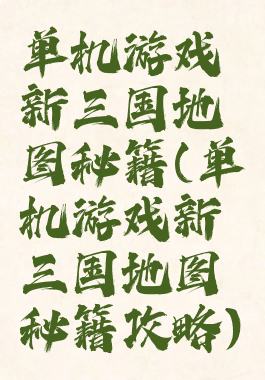 单机游戏
新三国地
图秘籍(单
机游戏新
三国地图
秘籍攻略)